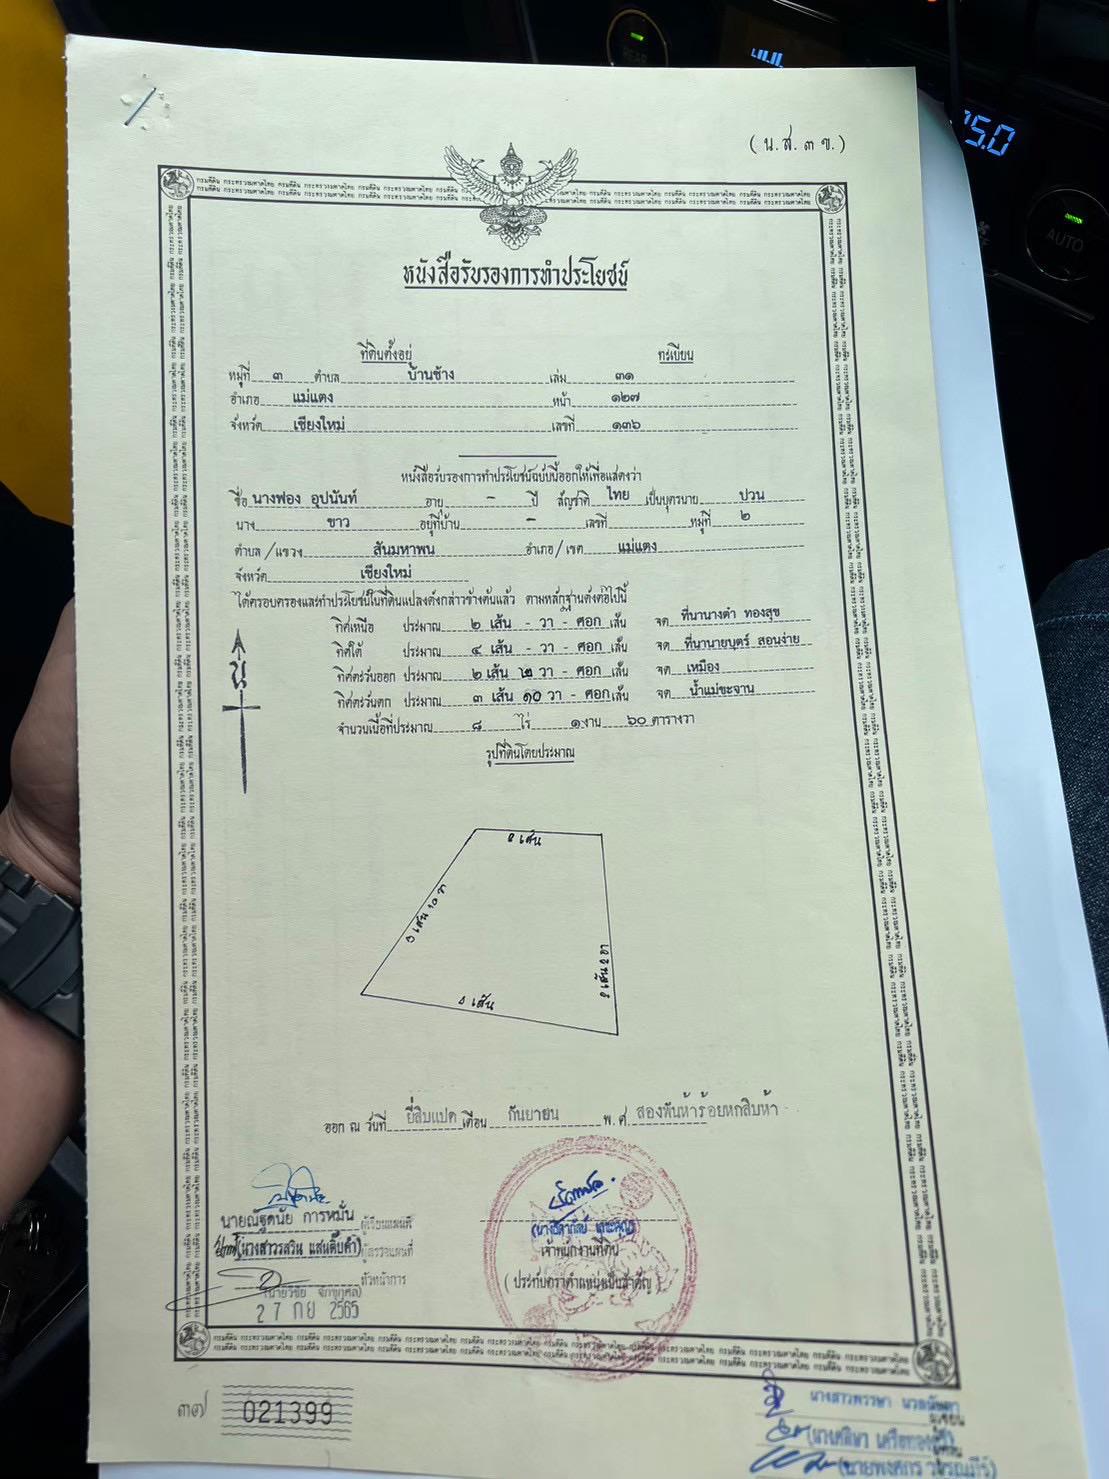 (น.ส. ๓ ข.)
หนังสือรับรองการทำประโยชน์
ที่ดินตั้งอยู่ ทะเบียน
หมู่ที่ ๓ ตำบล บ้านช้าง เล่ม ๓๑
อำเภอ แม่แตง หน้า ๑๒๗
จังหวัด เชียงใหม่ เลขที่ ๑๓๖
หนังสือรับรองการทำประโยชน์ฉบับนี้ออกให้เพื่อแสดงว่า
ชื่อ นางฟอง อุปนันท์ อายุ - ปี สัญชาติ ไทย เป็นบุตรนาย ปวน
นาง ขาว อยู่ที่บ้าน - เลขที่ หมู่ที่ ๒
ตำบล/แขวง สันมหาพน อำเภอ/เขต แม่แตง
จังหวัด เชียงใหม่
ได้ครอบครองและทำประโยชน์ในที่ดินแปลงดังกล่าวข้างต้นแล้ว ตามหลักฐานดังต่อไปนี้
ทิศเหนือ ประมาณ ๒ เส้น - วา - ศอก เส้น จด ที่นานางดำ ทองสุข
ทิศใต้ ประมาณ ๔ เส้น - วา - ศอก เส้น จด ที่นานายบุตร์ สอนง่าย
ทิศตะวันออก ประมาณ ๒ เส้น ๑๒ วา - ศอก เส้น จด เหมือง
ทิศตะวันตก ประมาณ ๓ เส้น ๑๐ วา - ศอก เส้น จด น้ำแม่ขะจาน
จำนวนเนื้อที่ประมาณ ๘ ไร่ ๑ งาน ๖๐ ตารางวา
น
รูปที่ดินโดยประมาณ
๒ เส้น
๓ เส้น ๑๐ วา
เส้น
ออก ณ วันที่ ยี่สิบแปด เดือน กันยายน พ.ศ. สองพันห้าร้อยหกสิบห้า
นายณฐดนัย การหมั่น ผู้เขียนแผนที่
(นางสาวรสริน แสนติ๊บคำ) ผู้ตรวจแผนที่
เจ้าพนักงานที่ดิน
หัวหน้าการ
(ประทับตราตำแหน่งเป็นสำคัญ)
27 กย 2565
๓๗ 021399